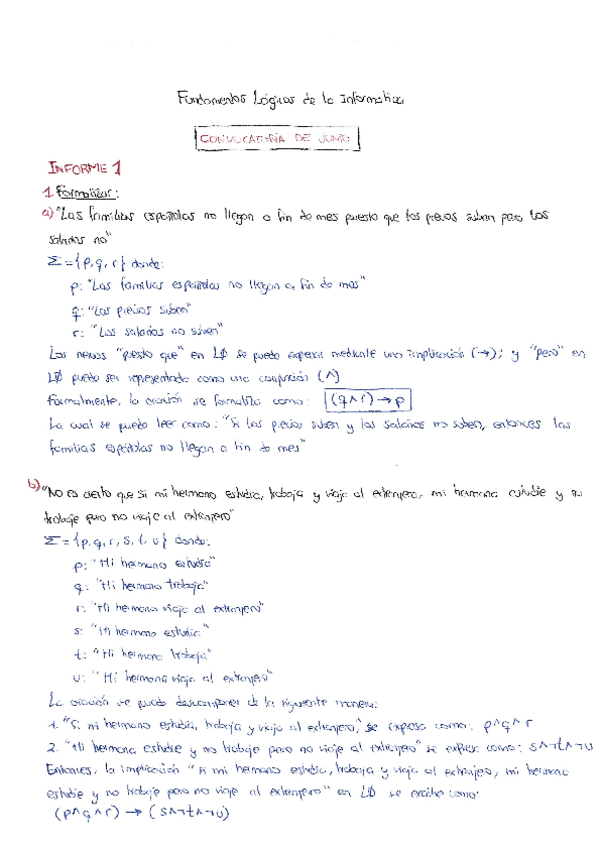 Fundamentos Lógicos de la Informática
CONVOCATORIA DE JUNIO
INFORME 1
1. Formalizar:
a) "Las familias españolas no llegan a fin de mes puesto que los precios suben pero los
salarios no"
Σ = {p, q, r} donde:
p: "Las familias españolas no llegan a fin de mes"
q: "Los precios suben"
r: "Los salarios no suben"
Los nexos "puesto que" en LØ se puede expresar mediante una implicación (→); y "pero" en
LØ puede ser representado como una conjunción (∧)
Formalmente, la oración se formaliza como: (q∧r)→p
La cual se puede leer como: "Si los precios suben y los salarios no suben, entonces las
familias españolas no llegan a fin de mes"
b) "No es cierto que si mi hermano estudia, trabaja y viaja al extranjero, mi hermana estudie y no
trabaje pero no viaje al extranjero"
Σ = {p, q, r, s, t, u} donde:
p: "Mi hermano estudia"
q: "Mi hermano trabaja"
r: "Mi hermano viaja al extranjero"
s: "Mi hermana estudia"
t: "Mi hermana trabaja"
u: "Mi hermana viaja al extranjero"
La oración se puede descomponer de la siguiente manera:
1. "Si mi hermano estudia, trabaja y viaja al extranjero," se expresa como: p∧q∧r
2. "Mi hermana estudie y no trabaje pero no viaje al extranjero" se expresa como: s∧¬t∧¬u
Entonces, la implicación "Si mi hermano estudia, trabaja y viaja al extranjero, mi hermana
estudie y no trabaje pero no viaje al extranjero" en LØ se escribe como:
(p∧q∧r) → (s∧¬t∧¬u)